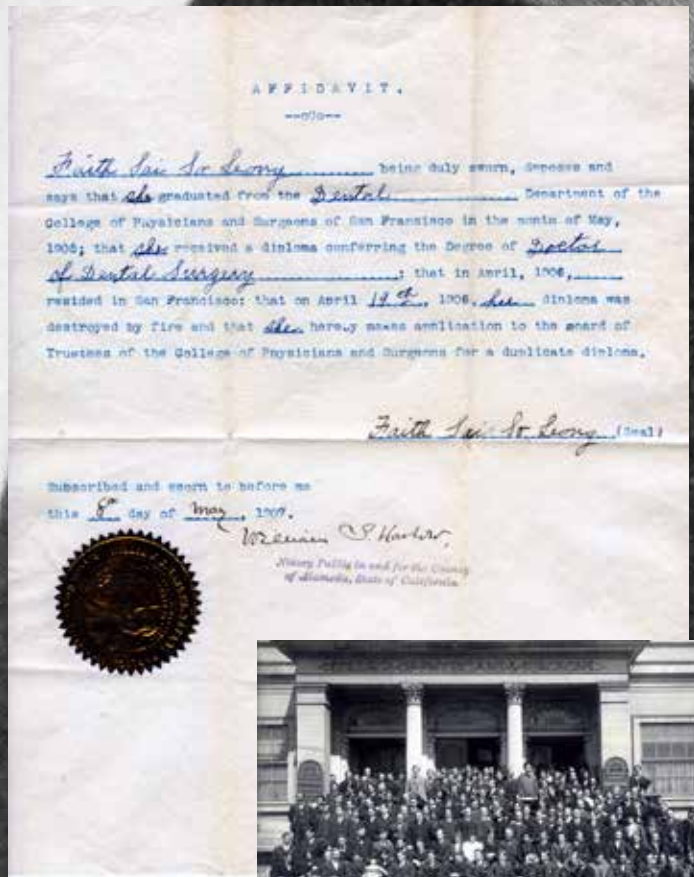 AFFIDAVIT.
--o0o--
Faith Sai So Leong being duly sworn, deposes and
says that she graduated from the Dental Department of the
College of Physicians and Surgeons of San Francisco in the month of May,
1905; that she received a diploma conferring the Degree of Doctor
of Dental Surgery ; that in April, 1906,
resided in San Francisco; that on April 19th, 1906, her diploma was
destroyed by fire and that she hereby makes application to the Board of
Trustees of the College of Physicians and Surgeons for a duplicate diploma.
Faith Sai So Leong (Seal)
Subscribed and sworn to before me
this 8th day of May, 1907.
William S. Harlow,
Notary Public in and for the County
of Alameda, State of California.
COLLEGE OF PHYSICIANS & SURGEONS